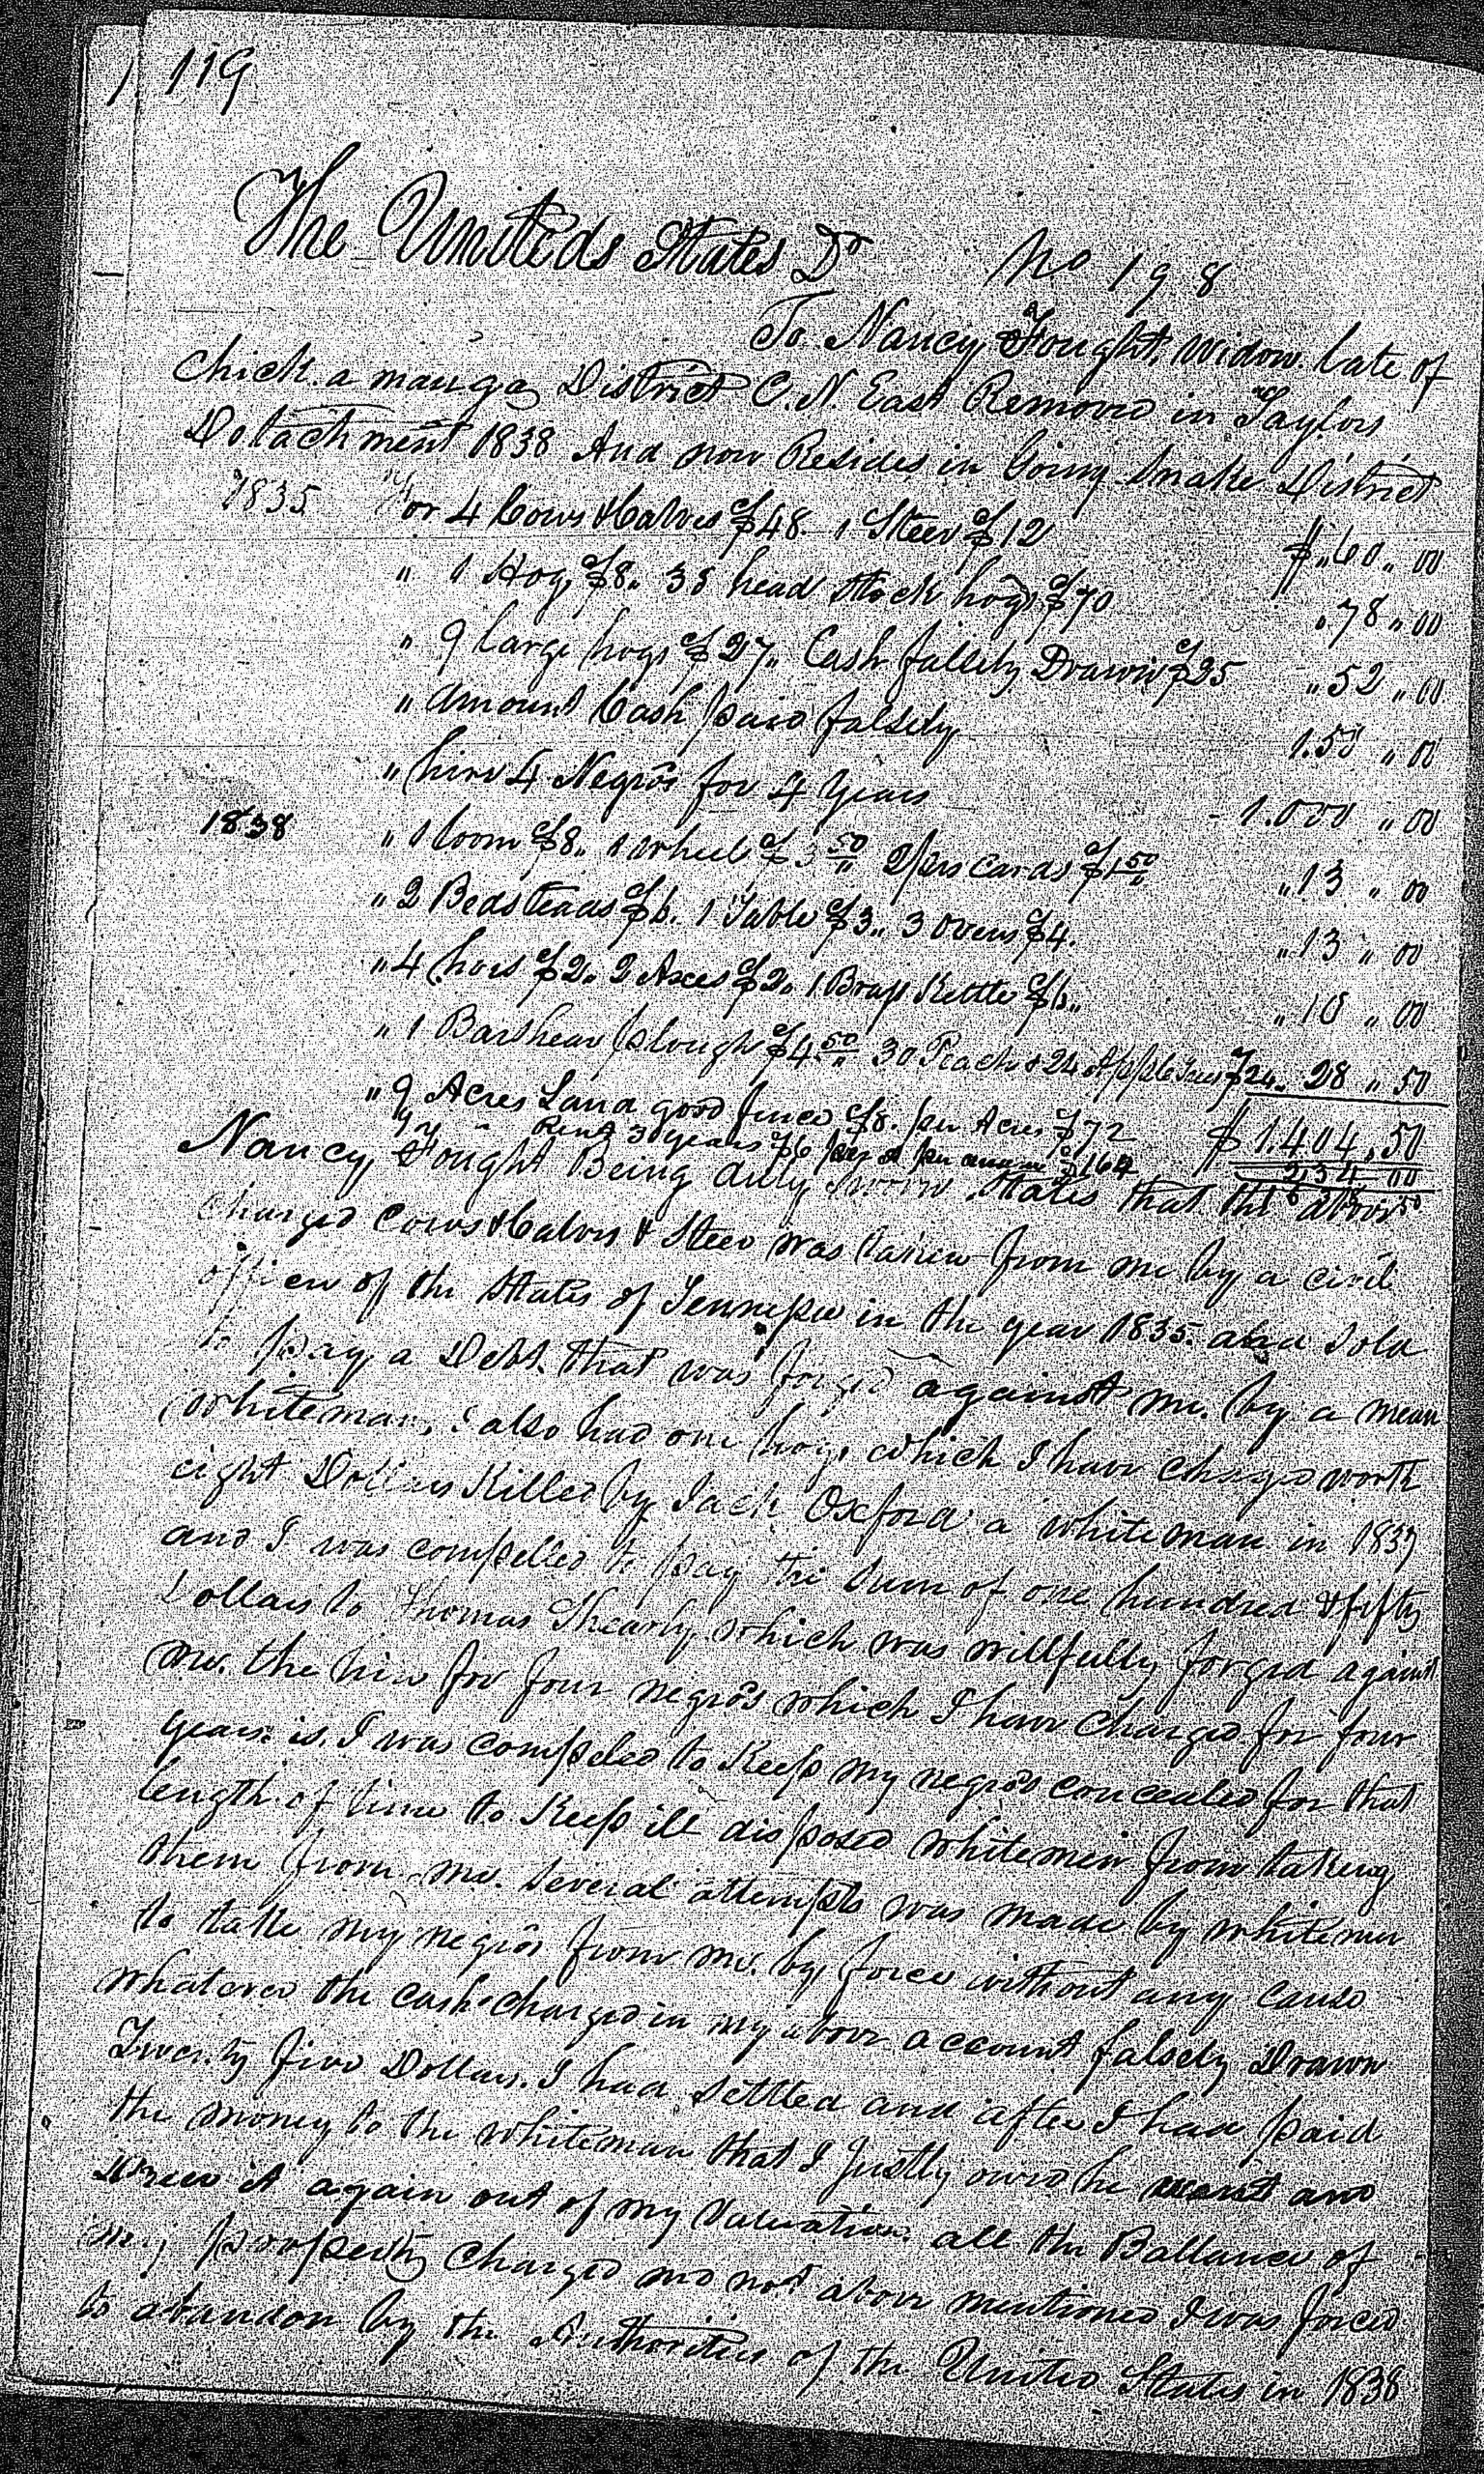 119
The Uniteds States Dr No 198
To Nancy Fought widow late of
Chick.a mauga District C.N. East Removed in Taylors
Detachment 1838 And now Resides in Going Snake District
1835 For 4 Cows & Calves $48. 1 Steer $12 $ 60 " 00
" 1 Hog $8. 35 head stock hogs $70 78 " 00
" 9 large hogs $27 " Cash falsely Drawn $25 " 52 " 00
" Amount Cash paid falsely 1.50 " 00
" hire 4 Negros for 4 years 1.000 " 00
1838 " 1 loom $8 " 1 wheel $3 50 2 prs cards $1 50 " 13 " 00
" 2 Bedsteads $6. 1 Table $3 " 3 ovens $4. " 13 " 00
" 4 hoes $2 " 2 Axes $2 " 1 Brass Kettle $6 " " 10 " 00
" 1 Barshear plough $4 50 30 Peach & 24 Apple Trees $24 " 28 " 50
" 9 Acres Land good fence $8. per Acres $72 $ 1.404.50
Rent 3 years $6 per annum $162 234 00
Nancy Fought Being duly sworn States that the above
charged cows & Calves & Steer was taken from me by a civil
officer of the States of Tennessee in the year 1835. and sold
to pay a Debt. that was forged against me. by a mean
whiteman, i also had one hog. which I have charged worth
eight Dollars Killed by Jack Oxford a whiteman in 1837
and I was compelled to pay the sum of one hundred & fifty
Dollars to Thomas which was willfully forged against
me. the hire for four negros which I have charged for four
years. is. I was compeled to Keep my negros concealed for that
length of time to Keep ill disposed whitemen from taking
them from me. Several attempts was made by whitemen
to take my negros from me. by force without any cause
whatever the cash charged in my above account falsely Drawn
Twenty five Dollars. I had settled and after I had paid
the money to the whiteman that I Justly owed he went and
Drew it again out of my Valuation. all the Ballance of
my property charged and not above mentioned I was forced
to abandon by the Authorities of the United States in 1838